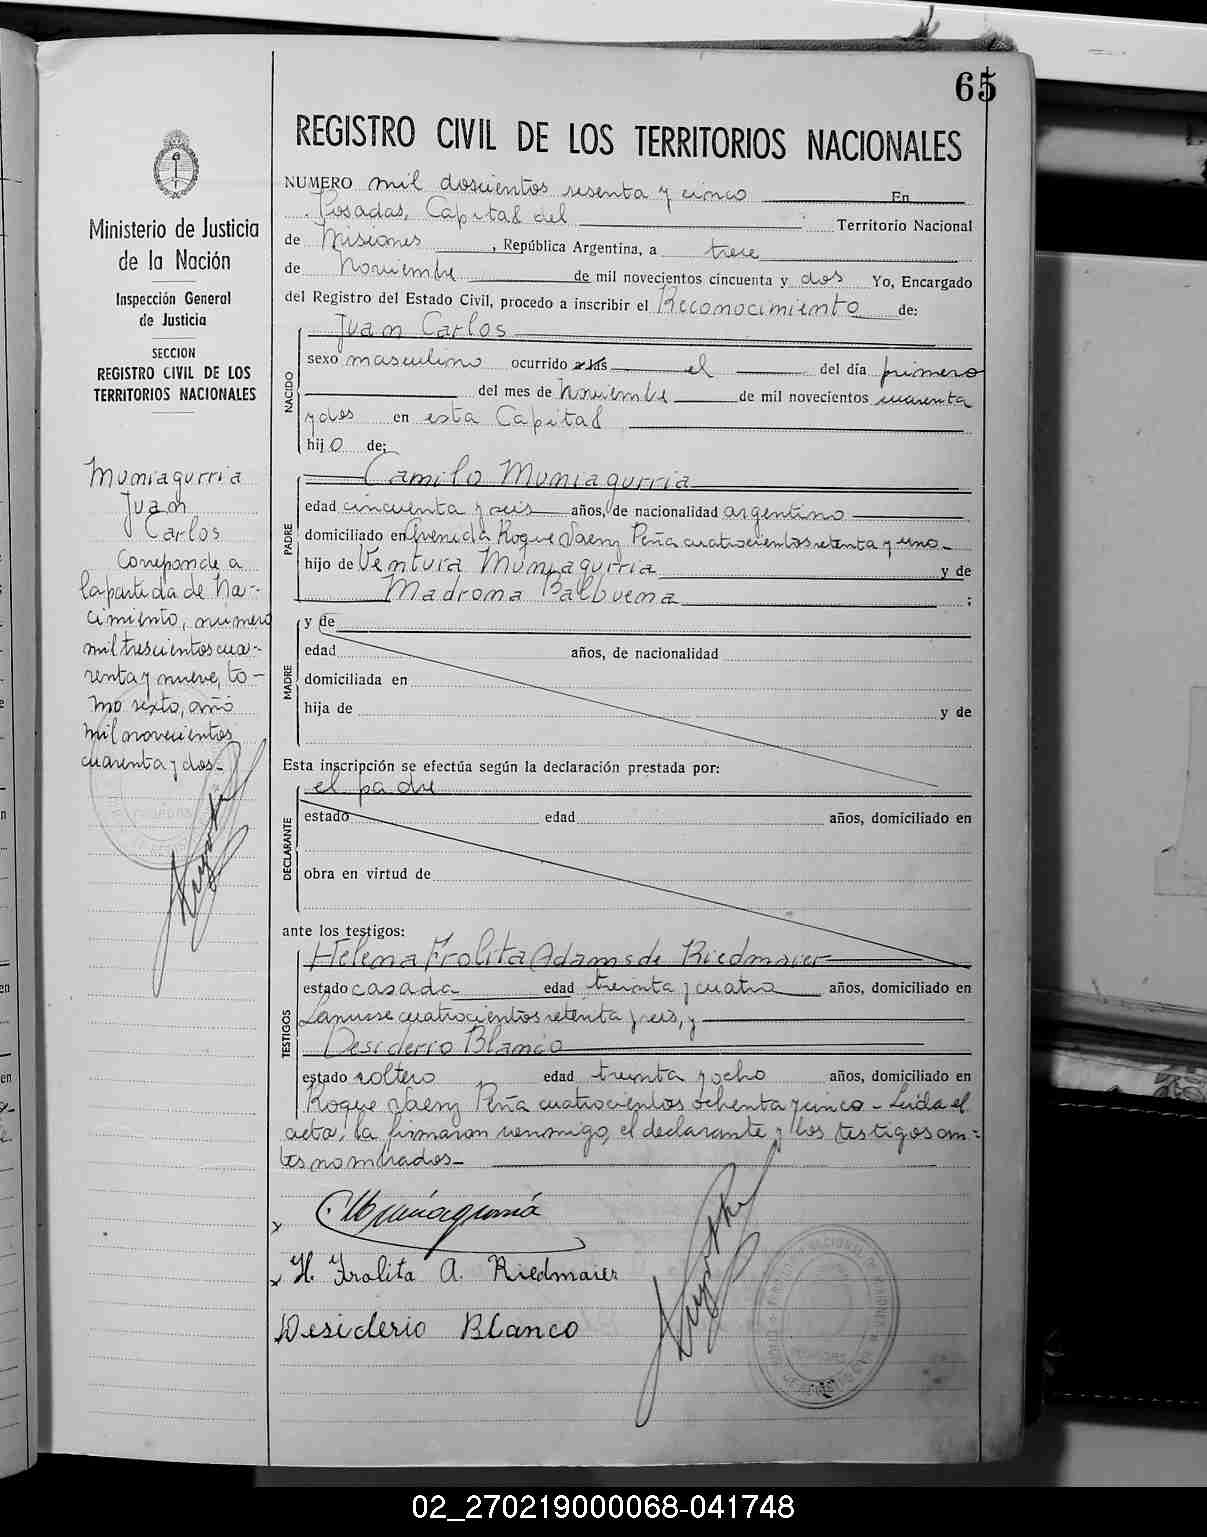 65
REGISTRO CIVIL DE LOS TERRITORIOS NACIONALES
Ministerio de Justicia
de la Nación
Inspección General
de Justicia
SECCION
REGISTRO CIVIL DE LOS
TERRITORIOS NACIONALES
Muniagurria
Juan
Carlos
Corresponde a
la partida de Na-
cimiento, numero
mil trescientos cua-
renta y nueve, to-
mo sexto, año
mil novecientos
cuarenta y dos.-
NUMERO mil doscientos sesenta y cinco En
Posadas, Capital del Territorio Nacional
de Misiones, República Argentina, a trece
de Noviembre de mil novecientos cincuenta y dos Yo, Encargado
del Registro del Estado Civil, procedo a inscribir el Reconocimiento de:
Juan Carlos
NACIDO
sexo masculino ocurrido a las el del día primero
del mes de Noviembre de mil novecientos cuarenta
y dos en esta Capital
hijo de:
Camilo Muniagurria
PADRE
edad cincuenta y seis años, de nacionalidad argentino
domiciliado en Avenida Roque Saenz Peña cuatrocientos setenta y uno.-
hijo de Ventura Muniagurria y de
Madrona Balbuena ;
MADRE
y de
edad años, de nacionalidad
domiciliada en
hija de y de
Esta inscripción se efectúa según la declaración prestada por:
el padre
DECLARANTE
estado edad años, domiciliado en
obra en virtud de
ante los testigos:
Helena Frolita Adams de Riedmaier
TESTIGOS
estado casada edad treinta y cuatro años, domiciliado en
Lanusse cuatrocientos setenta y seis, y
Desiderio Blanco
estado soltero edad treinta y ocho años, domiciliado en
Roque Saenz Peña cuatrocientos ochenta y cinco.- Leida el
acta, la firmaron conmigo, el declarante y los testigos an=
tes nombrados.-
C Muniagurria
H. Frolita A. Riedmaier
Desiderio Blanco
02_270219000068-041748